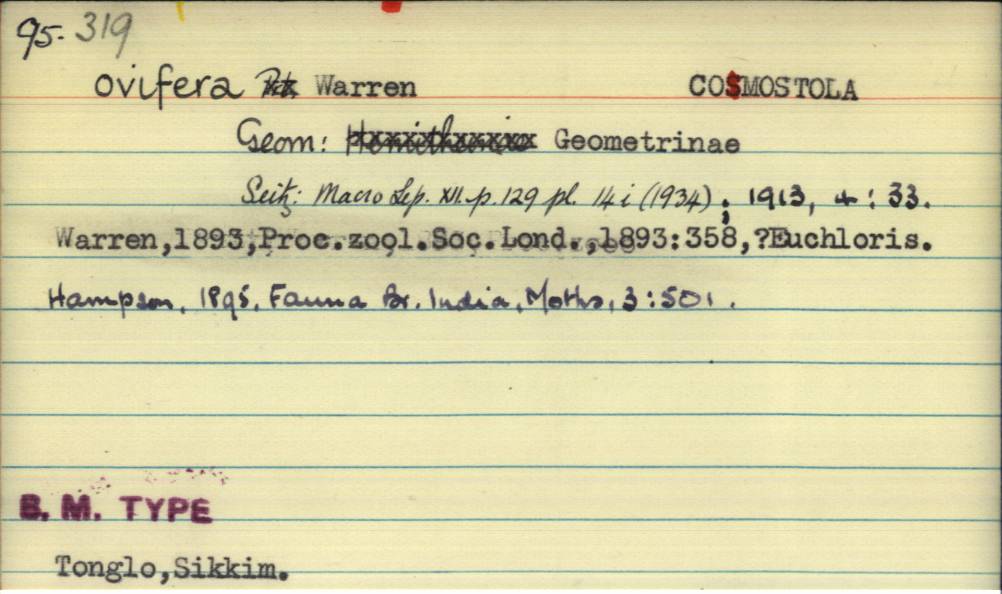 95. 319
ovifera Warren COSMOSTOLA
Geom: Geometrinae
Seitz: Macro Lep. XII. p. 129 pl. 14 i (1934); 1913, 4: 33.
Warren,1893,Proc.zool.Soc.Lond.,1893:358,?Euchloris.
Hampson, 1895, Fauna Br. India, Moths, 3:501.
B. M. TYPE
Tonglo,Sikkim.